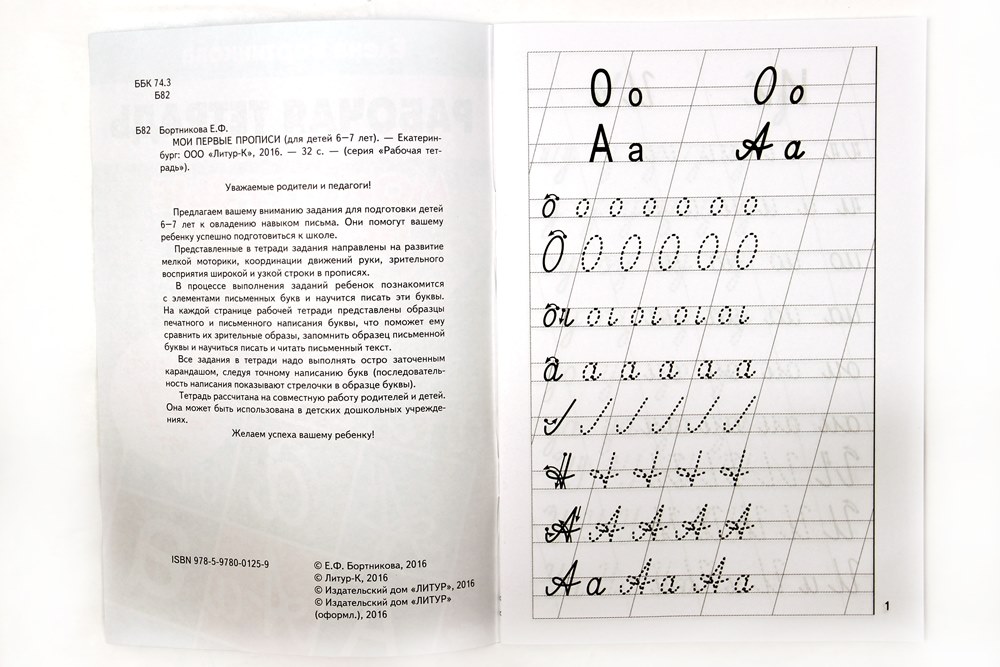 ББК 74.3
Б82
Б82 Бортникова Е.Ф.
МОИ ПЕРВЫЕ ПРОПИСИ (для детей 6–7 лет). — Екатерин-
бург: ООО «Литур-К», 2016. — 32 с. — (серия «Рабочая тет-
радь»).
Уважаемые родители и педагоги!
Предлагаем вашему вниманию задания для подготовки детей
6–7 лет к овладению навыком письма. Они помогут вашему
ребенку успешно подготовиться к школе.
Представленные в тетради задания направлены на развитие
мелкой моторики, координации движений руки, зрительного
восприятия широкой и узкой строки в прописях.
В процессе выполнения заданий ребенок познакомится
с элементами письменных букв и научится писать эти буквы.
На каждой странице рабочей тетради представлены образцы
печатного и письменного написания буквы, что поможет ему
сравнить их зрительные образы, запомнить образец письменной
буквы и научиться писать и читать письменный текст.
Все задания в тетради надо выполнять остро заточенным
карандашом, следуя точному написанию букв (последователь-
ность написания показывают стрелочки в образце буквы).
Тетрадь рассчитана на совместную работу родителей и детей.
Она может быть использована в детских дошкольных учрежде-
ниях.
Желаем успеха вашему ребенку!
ISBN 978-5-9780-0125-9
© Е.Ф. Бортникова, 2016
© Литур-К, 2016
© Издательский дом «ЛИТУР», 2016
© Издательский дом «ЛИТУР»
(оформл.), 2016
О о О о
А а А а
о о о о о о о
О О О О О О
а а а а а а
А А А А А
А а А а А а
1